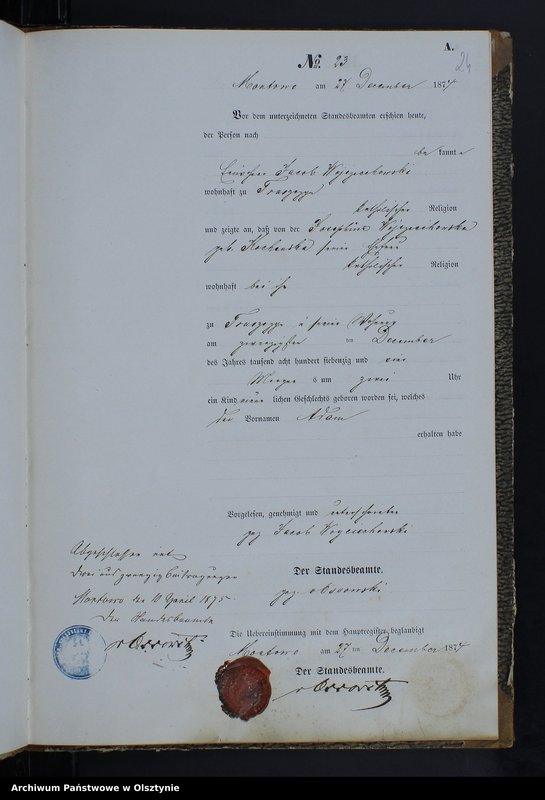 A.
24
No. 23
Montowo am 27 December 1874
Vor dem unterzeichneten Standesbeamten erschien heute,
der Person nach
be kannt
Jacob Wojciechowski
wohnhaft zu
katholischer Religion
und zeigte an, daß von der Josephine Wojciechowska
geb. Kochanska seiner Ehefrau
katholischer Religion
wohnhaft bei ihm
zu in seiner Wohnung
am zwanzigsten ten December
des Jahres tausend acht hundert siebenzig und
Morgens um zwei Uhr
ein Kind männlichen Geschlechts geboren worden sei, welches
den Vornamen Adam
erhalten habe
Vorgelesen, genehmigt und unterschrieben
gez Jacob Wojciechowski
Der Standesbeamte.
gez. v Ossowski
Die Uebereinstimmung mit dem Hauptregister beglaubigt
Montowo am 27 ten December 1874
Der Standesbeamte.
v Ossowski
Abgeschlossen mit
drei und zwanzig Eintragungen
Montowo den 10 April 1875
Der Standesbeamte
v Ossowski
Archiwum Państwowe w Olsztynie